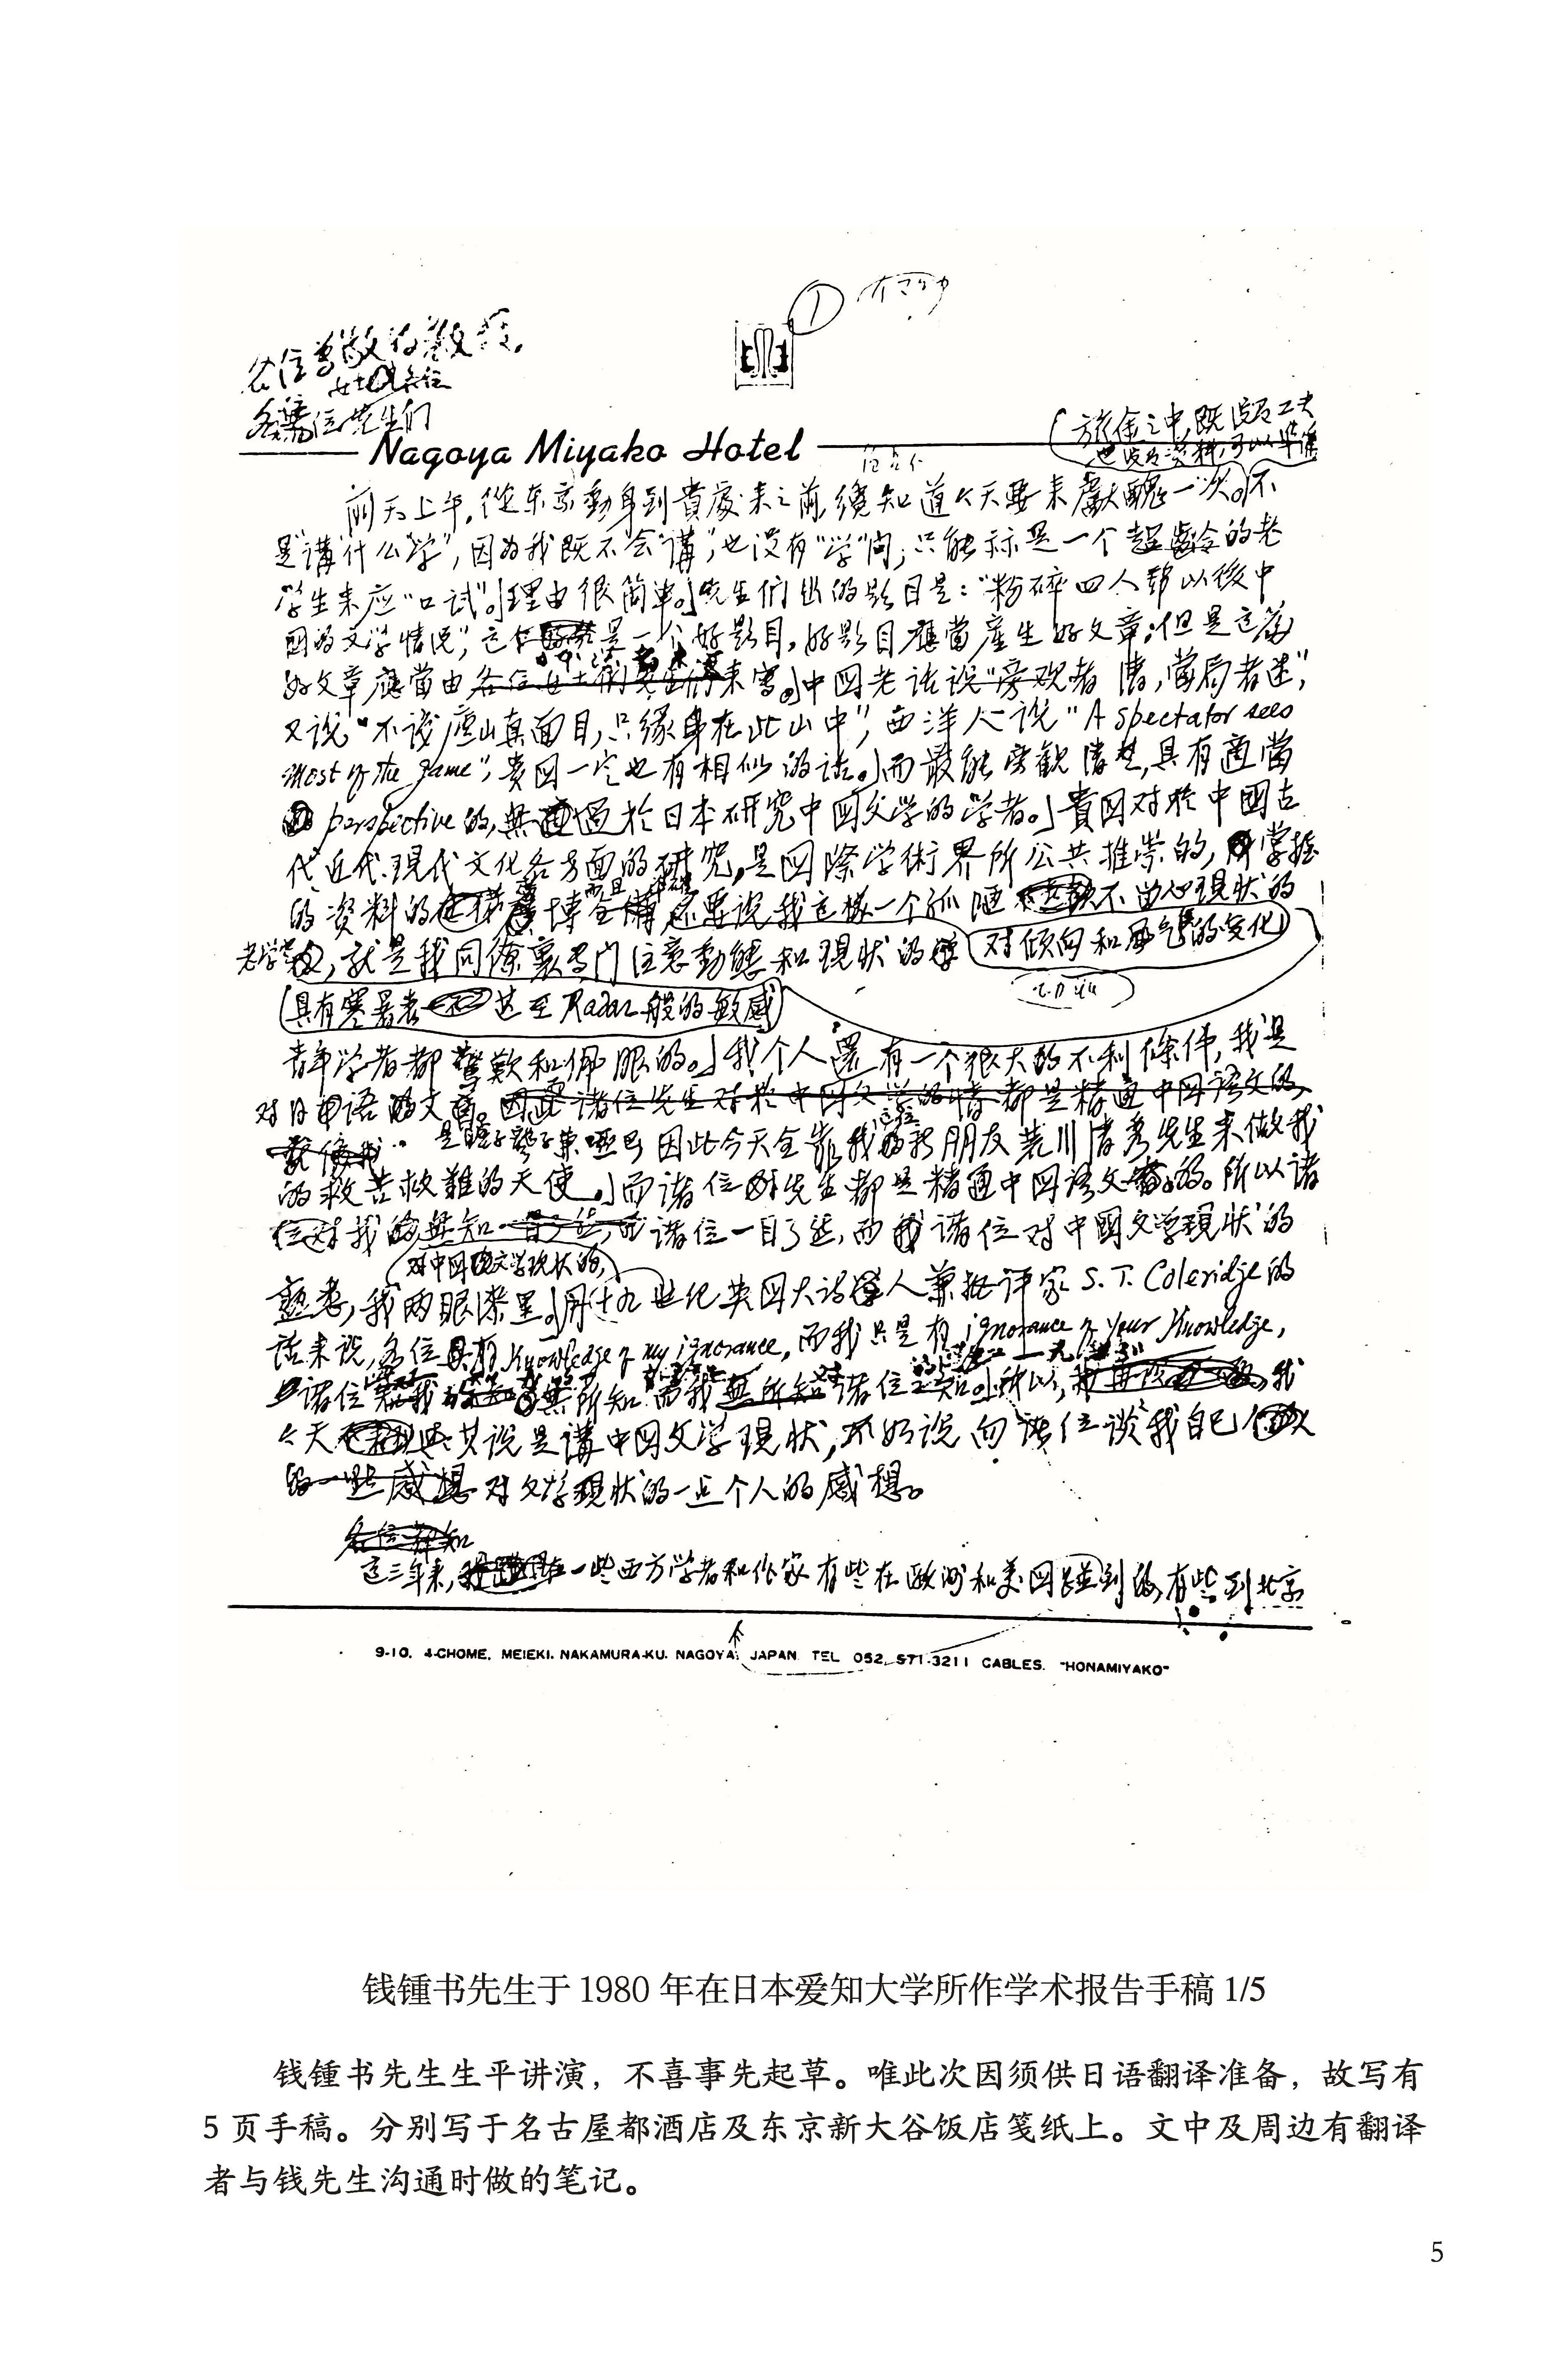 ①
各位尊敬的教授,
女士们各位
各位先生们
Nagoya Miyako Hotel
旅途之中,既没有工夫
也没有资料可以準備
前天上午,從东京動身到貴處来之前,纔知道今天要来獻醜一次。不
是“講”什么“学”,因为我既不会“講”,也没有“学”问;只能称是一个超齡的老
学生来应“口试”。理由很简单。先生们出的题目是:“粉碎四人帮以後中
国的文学情况”,这是一个好题目,好题目應當產生好文章;但是这篇
好文章應當由各位来写。中国老话说“旁观者清,當局者迷”,
又说“不识廬山真面目,只缘身在此山中”,西洋人说“A spectator sees
most of the game”,貴国一定也有相似的话。而最能旁観清楚,具有適當
perspective的,無過於日本研究中国文学的学者。貴国对於中國古
代近代現代文化各方面的研究,是国際学術界所公共推崇的,掌握
的资料的博而且全備,不要说我这樣一个孤陋不留心現状的
老学究,就是我同僚裏专门注意動態和現状的 对倾向和风气的变化
具有寒暑表甚至Radar般的敏感
青年学者都驚歎和佩服的。我个人還有一个很大的不利條件,我是
对日本语文 诸位先生对於中国文学的 都是精通中国语文的
是瞎子聾子兼哑巴 因此今天全靠我这位的新朋友荒川清秀先生来做我
的救苦救難的天使。而诸位先生都是精通中国语文的。所以诸
位对我的無知 诸位一目了然,而诸位对中國文学現状的
对中国文学现状的
熟悉,我两眼漆黑。用十九世纪英国大诗人兼批评家S. T. Coleridge的
话来说,各位具有knowledge of my ignorance,而我只是有ignorance of your knowledge,
诸位 無所知 而我無所知 诸位 所以,我
今天與其说是講中国文学現状,不如说向诸位谈我自己
的一些感想 对文学現状的一点个人的感想。
各位都知
这三年来,一些西方学者和作家有些在欧洲和美国碰到的,有些到北京
9-10, 4-CHOME, MEIEKI, NAKAMURA-KU, NAGOYA, JAPAN TEL 052, 571-3211 CABLES. "HONAMIYAKO"
钱锺书先生于1980年在日本爱知大学所作学术报告手稿1/5
钱锺书先生生平讲演，不喜事先起草。唯此次因须供日语翻译准备，故写有
5页手稿。分别写于名古屋都酒店及东京新大谷饭店笺纸上。文中及周边有翻译
者与钱先生沟通时做的笔记。
5